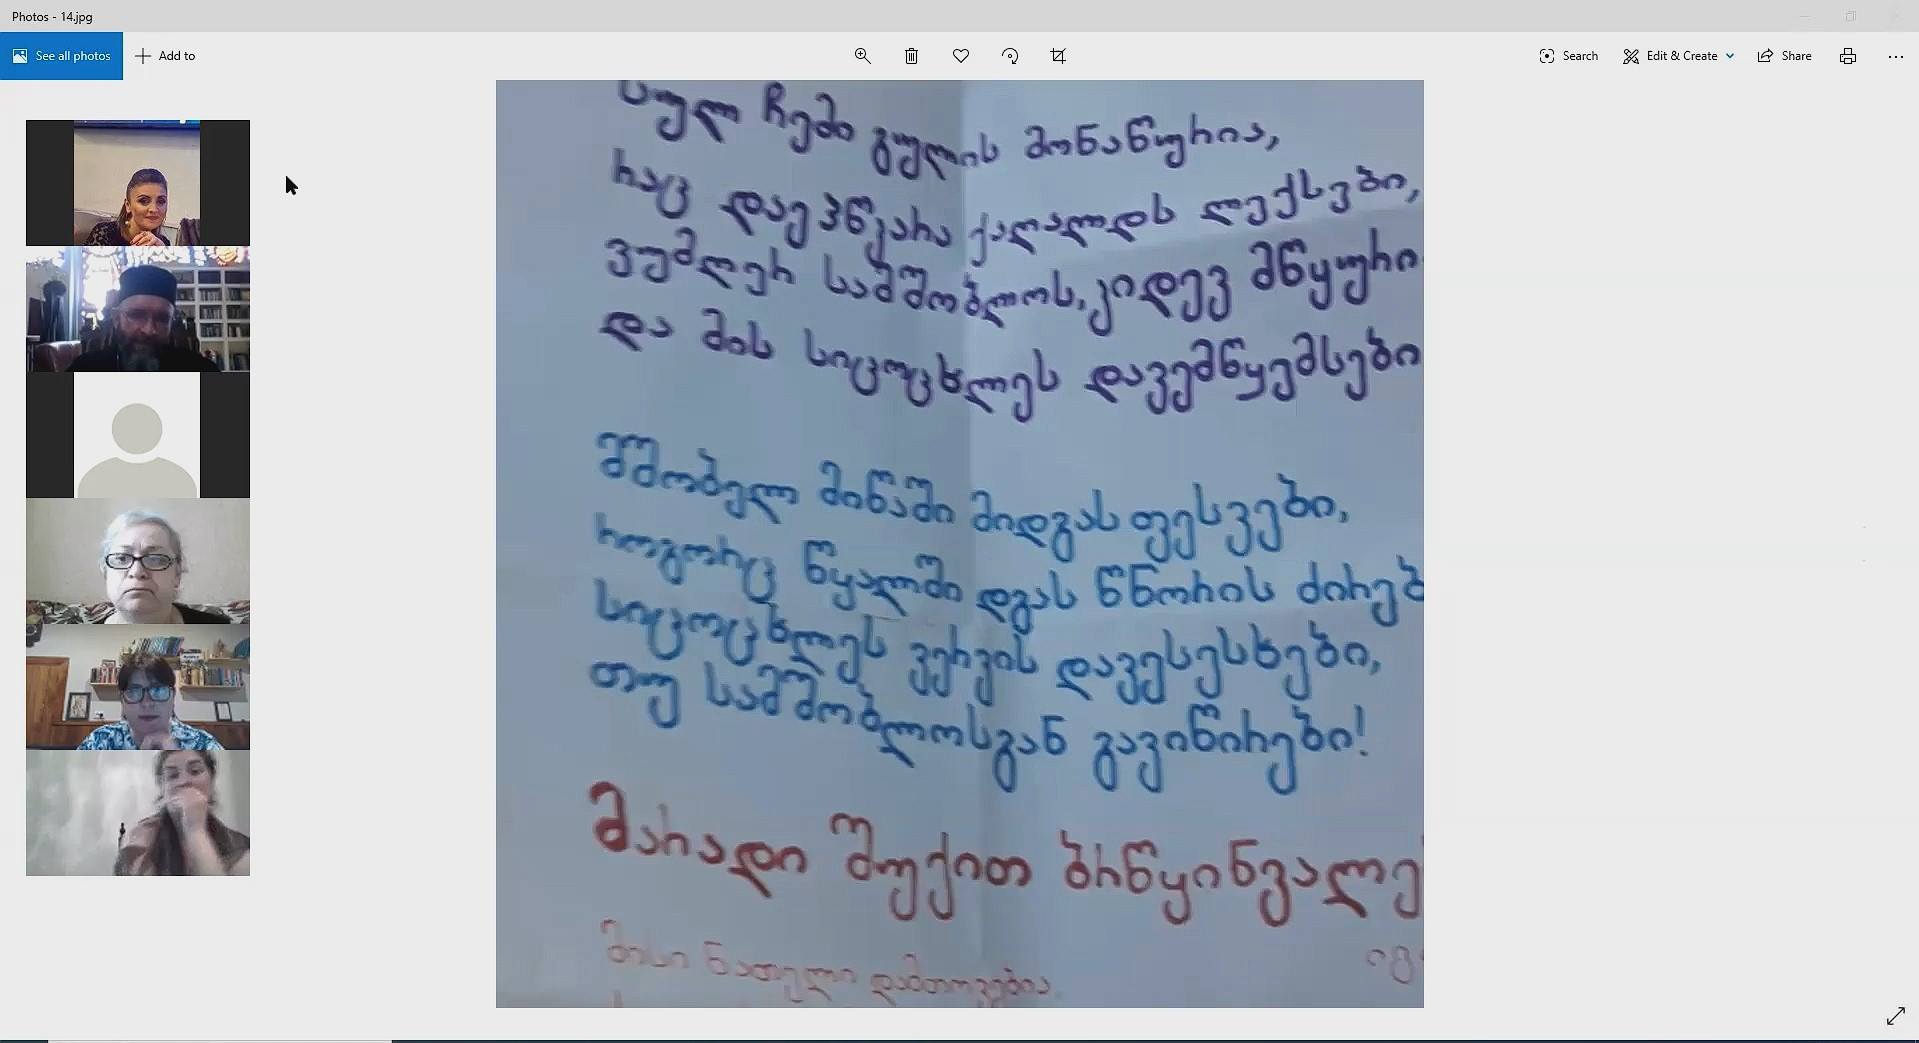 Photos - 14.jpg
See all photos
Add to
Search
Edit & Create
Share
სულ ჩემი გულის მონაწურია,
რაც დაეპწკარა ქაღალდს ლექსები,
ვუმღერ სამშობლოს, კიდევ მწყური
და მის სიცოცხლეს დავემწყემსები
მშობელ მიწაში მიდგას ფესვები,
როგორც წყალში დგას წნორის ძირებ
სიცოცხლეს ვერვის დავესესხები,
თუ სამშობლოსგან გავიწირები!
მარადი შუქით ბრწყინვალე
მისი ნათელი დამთოვებია